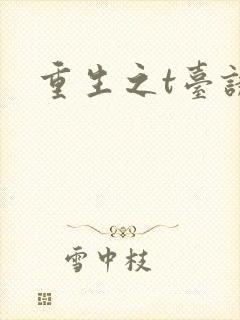 重生之t臺
雪中枝